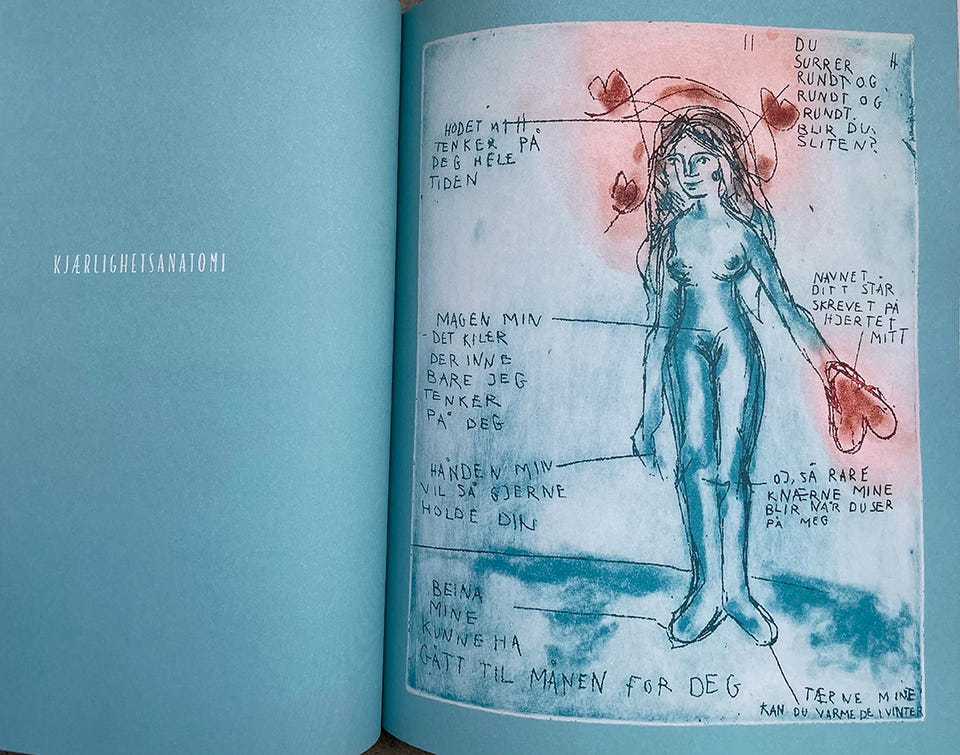 KJÆRLIGHETSANATOMI
DU
SURRER
RUNDT OG
RUNDT OG
RUNDT.
BLIR DU
SLITEN?
HODET MITT
TENKER PÅ
DEG HELE
TIDEN
NAVNET
DITT STÅR
SKREVET PÅ
HJERTET
MITT
MAGEN MIN
DET KILER
DER INNE
BARE JEG
TENKER
PÅ DEG
HÅNDEN MIN
VIL SÅ GJERNE
HOLDE DIN
OJ, SÅ RARE
KNÆRNE MINE
BLIR NÅR DU SER
PÅ MEG
BEINA
MINE
KUNNE HA
GÅTT TIL MÅNEN FOR DEG
TÆRNE MINE
KAN DU VARME DE I VINTER